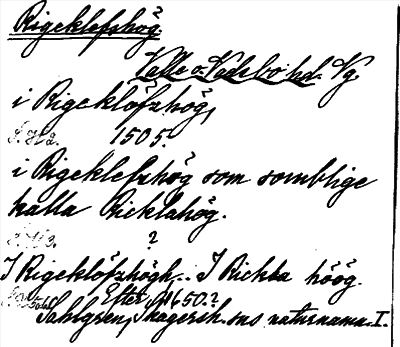 Rigeklefshög.
Valle o. Vadsbo hd. Vg.
i Rigeklöfzhög,
1505.
i Rigeklefzhög som somblige
kalla Ricklahög.
?
I Rigeklöfzhögh,.. I Richla höög.
Efter 1650.?
Sahlgren, Skagersh. sns naturnamn. I.